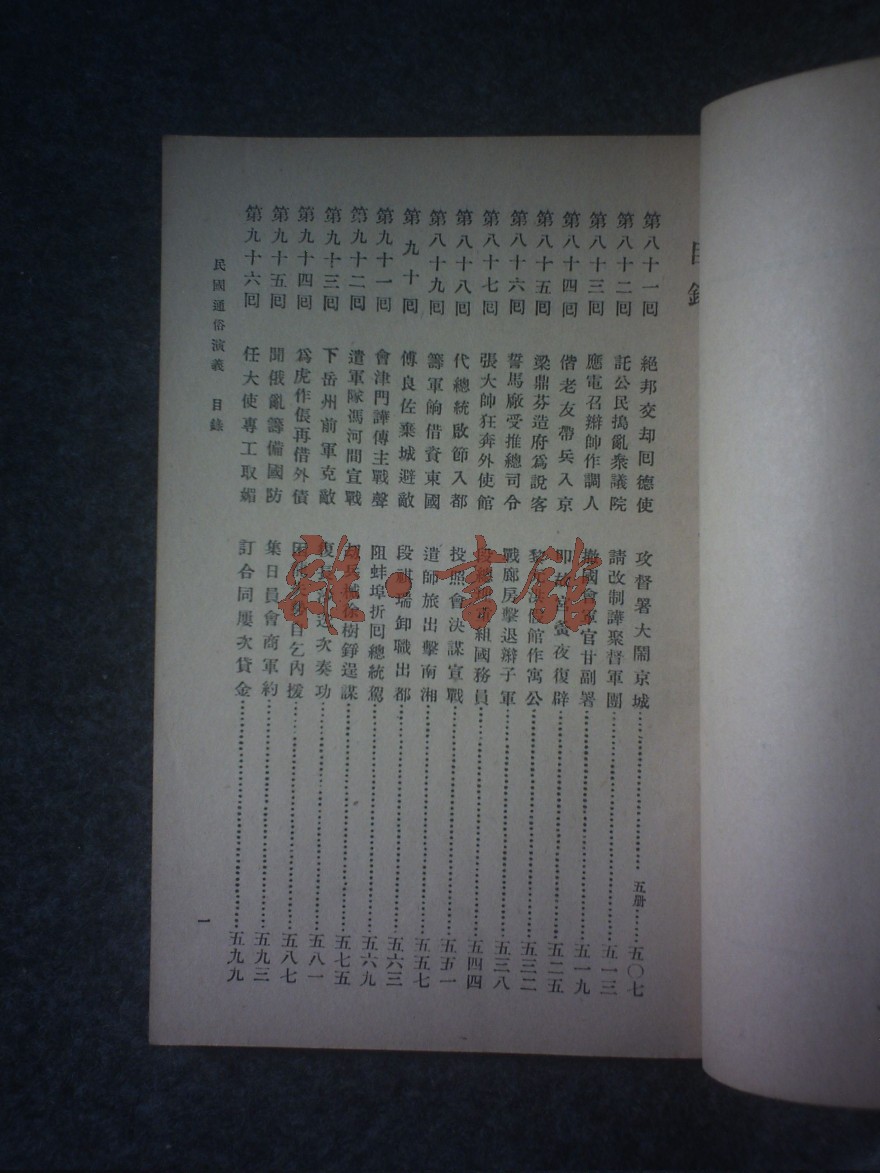 目錄
第八十一回 絕邦交却回德使 攻督署大鬧京城 五册 五〇七
第八十二回 託公民搗亂衆議院 請改制譁聚督軍團 五一三
第八十三回 應電召辮帥作調人 撤國會軍官甘副署 五一九
第八十四回 偕老友帶兵入京 叩故宮夤夜復辟 五二五
第八十五回 梁鼎芬造府爲說客 黎元洪假館作寓公 五三二
第八十六回 誓馬廠受推總司令 戰廊房擊退辮子軍 五三八
第八十七回 張大帥狂奔外使館 段總理重組國務員 五四四
第八十八回 代總統啟節入都 投照會決謀宣戰 五五一
第八十九回 籌軍餉借資東國 遣師旅出擊南湘 五五七
第九十回 傅良佐棄城避敵 段祺瑞卸職出都 五六三
第九十一回 會津門譁傳主戰聲 阻蚌埠折回總統駕 五六九
第九十二回 遣軍隊馮河間宣戰 徐樹錚逞謀 五七五
第九十三回 下岳州前軍克敵 復長沙迭次奏功 五八一
第九十四回 爲虎作倀再借外債 困 自乞內援 五八七
第九十五回 聞俄亂籌備國防 集日員會商軍約 五九三
第九十六回 任大使專工取媚 訂合同屢次貸金 五九九
民國通俗演義 目錄
一
雜·書館